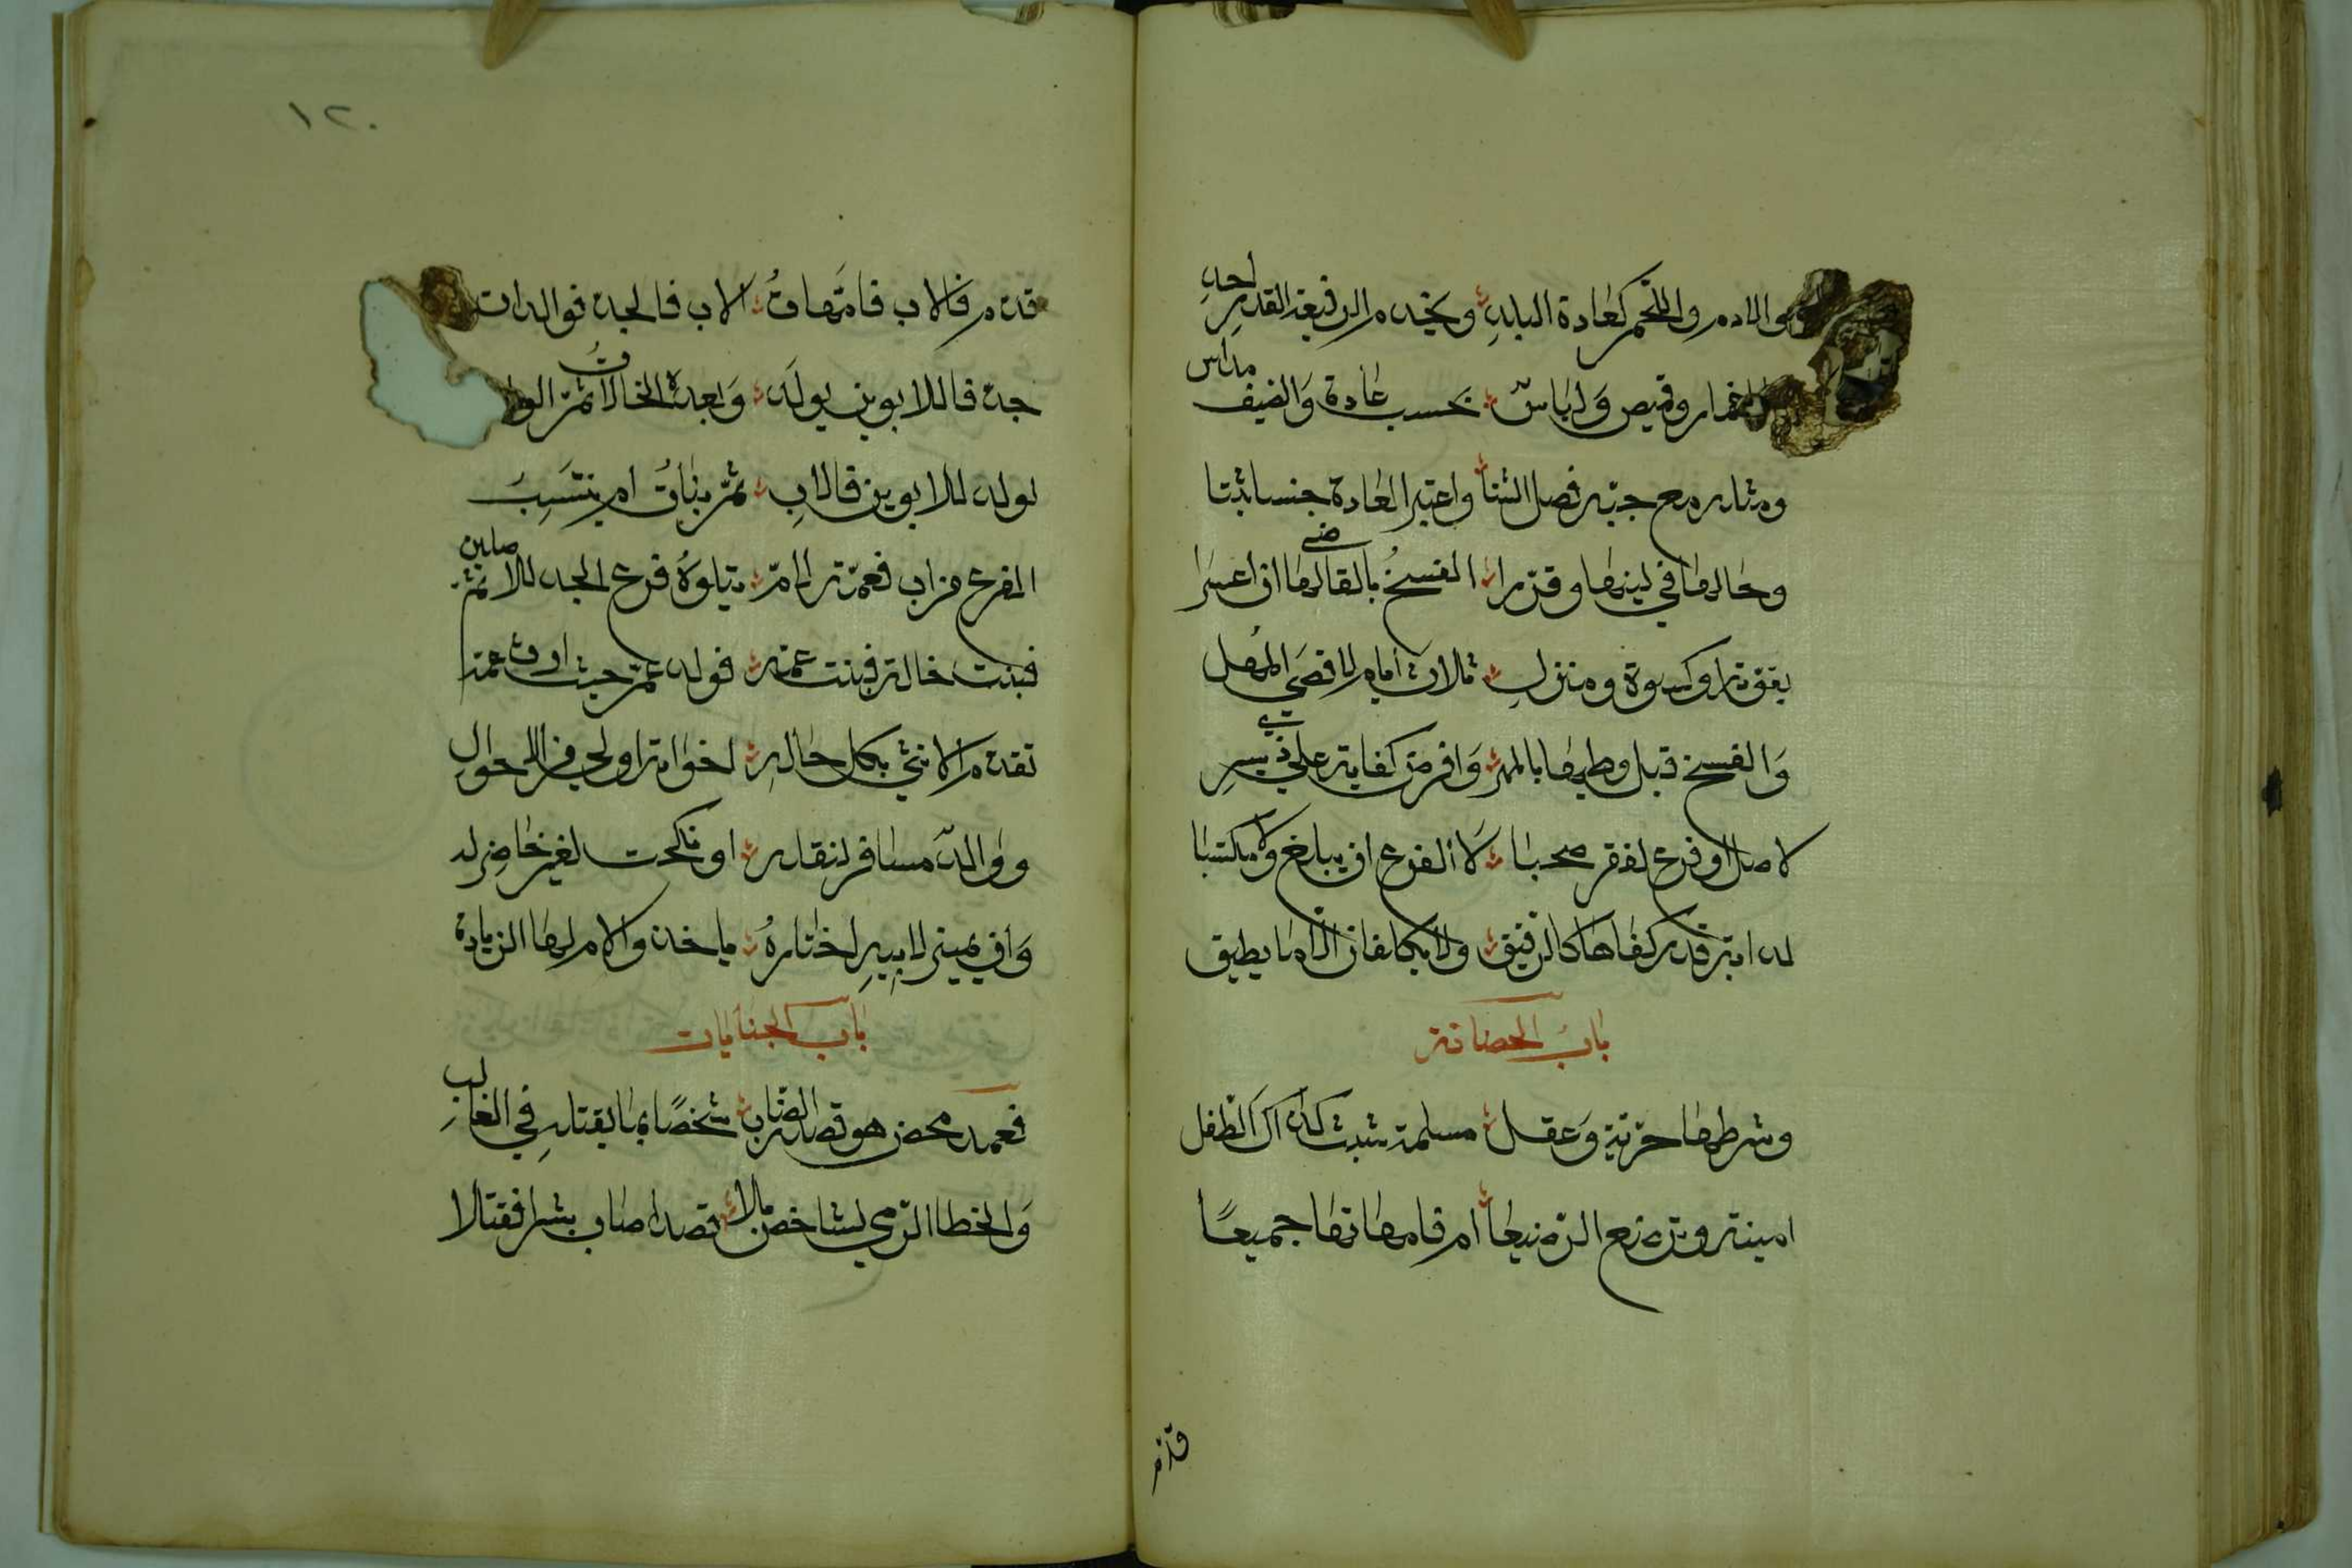 والادم واللحم كعادة البلد ويخدم الرفيعة القدر احد
خمار وقميص ولباس بحسب عادة والصيف مداس
ومثله مع جبة فصل الشتا واعتبر العادة جنسا ثبتا
وحالها في لينها وقررا الفسخ بالقاضي لها ان اعسرا
بقوته او كسوة ومنزل ثلاث ايام لاقصى المهل
والفسخ قبل وطيها بالمهر وافرض كفاية على ذي يسر
لاصل او فرع لفقر صحبا لا الفرع ان يبلغ ولا مكتسبا
لدابة قدر كفاها كالرقيق ولا يكلفان الا ما يطيق
باب الحضانة
وشرطها حرية وعقل مسلمة حيث كذاك الطفل
امينة وترضع الرضيعا ام فامهاتها جميعًا
قدم
١٢٠
قدم فالاب فامهات الاب فالجد فوالدات
جد فما للابوين يولد وبعده الخالات ثم الولد
لولد للابوين فالاب ثم بنات ام ينتسب
الفرع من اب فعمة لام يتلوه فرع الجد للاصلين ثم
فبنت خالة فبنت عمه فولد عم حيث ارث عمه
تقدم الانثى بكل حال اخواته اولى في الاحوال
والد مسافر لنقله او نكحت لغير حاضن له
وان يميز لابيه اختاره ياخذه والام لها الزيارة
باب الجنايات
فعمد محض هو قصد الضارب شخصًا بما يقتله في الغالب
والخطا الرمي لشاخص بلا قصد اصاب بشرا فقتلا